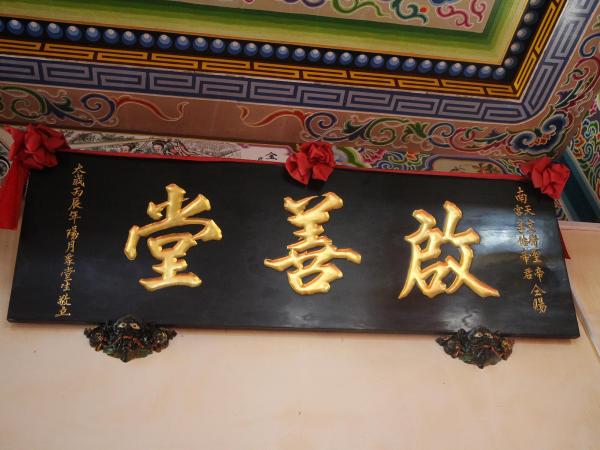 啟善堂
南天文衡聖帝
南宮孚佑帝君 仝賜
太歲丙辰年陽月季堂生敬立